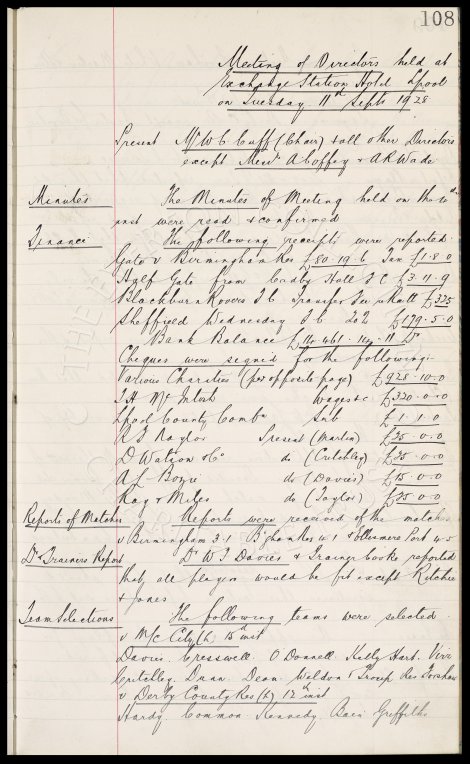 108
Meeting of Directors held at
Exchange Station Hotel Lpool
on Tuesday 11th Septr 1928
Present Mr W C Cuff (Chair) & all other Directors
except Messrs A Coffey & A R Wade
Minutes The Minutes of Meeting held on the
inst were read & confirmed
Finance The following receipts were reported.
Gate v Birmingham Res £80.19.6 £1.8.0
Half Gate from Cadby Hall F C £3.11.9
Blackburn Rovers F C Transfer fee £325
Sheffield Wednesday F C £179.5.0
Bank Balance Dr
Cheques were signed for the following:-
Various Charities (per opposite page) £928.10.0
T H McIntosh Wages &c £320.0.0
Lpool County Combn Sub £1.1.0
R S Naylor Present (Martin) £25.0.0
D Watson & Co do (Critchley) £25.0.0
A L do (Davies) £15.0.0
Ray & Miles do (Taylor) £25.0.0
Reports of Matches Reports were received of the matches
v Birmingham 3-1 B'gham Res 4-1 & Ellesmere Port 4-5
Dr & Trainers Report Dr W J Davies & Trainer Cooke reported
that all players would be fit except Ritchie
& Jones
Team Selections The following teams were selected.
v M/c City (h) 15th inst
Davies. Cresswell. O'Donnell Kelly Hart. Virr
Critchley. Dunn. Dean. Weldon & Troup. Res Forshaw
v Derby County Res (h) 12th inst
Hardy Common Kennedy. Bain Griffiths